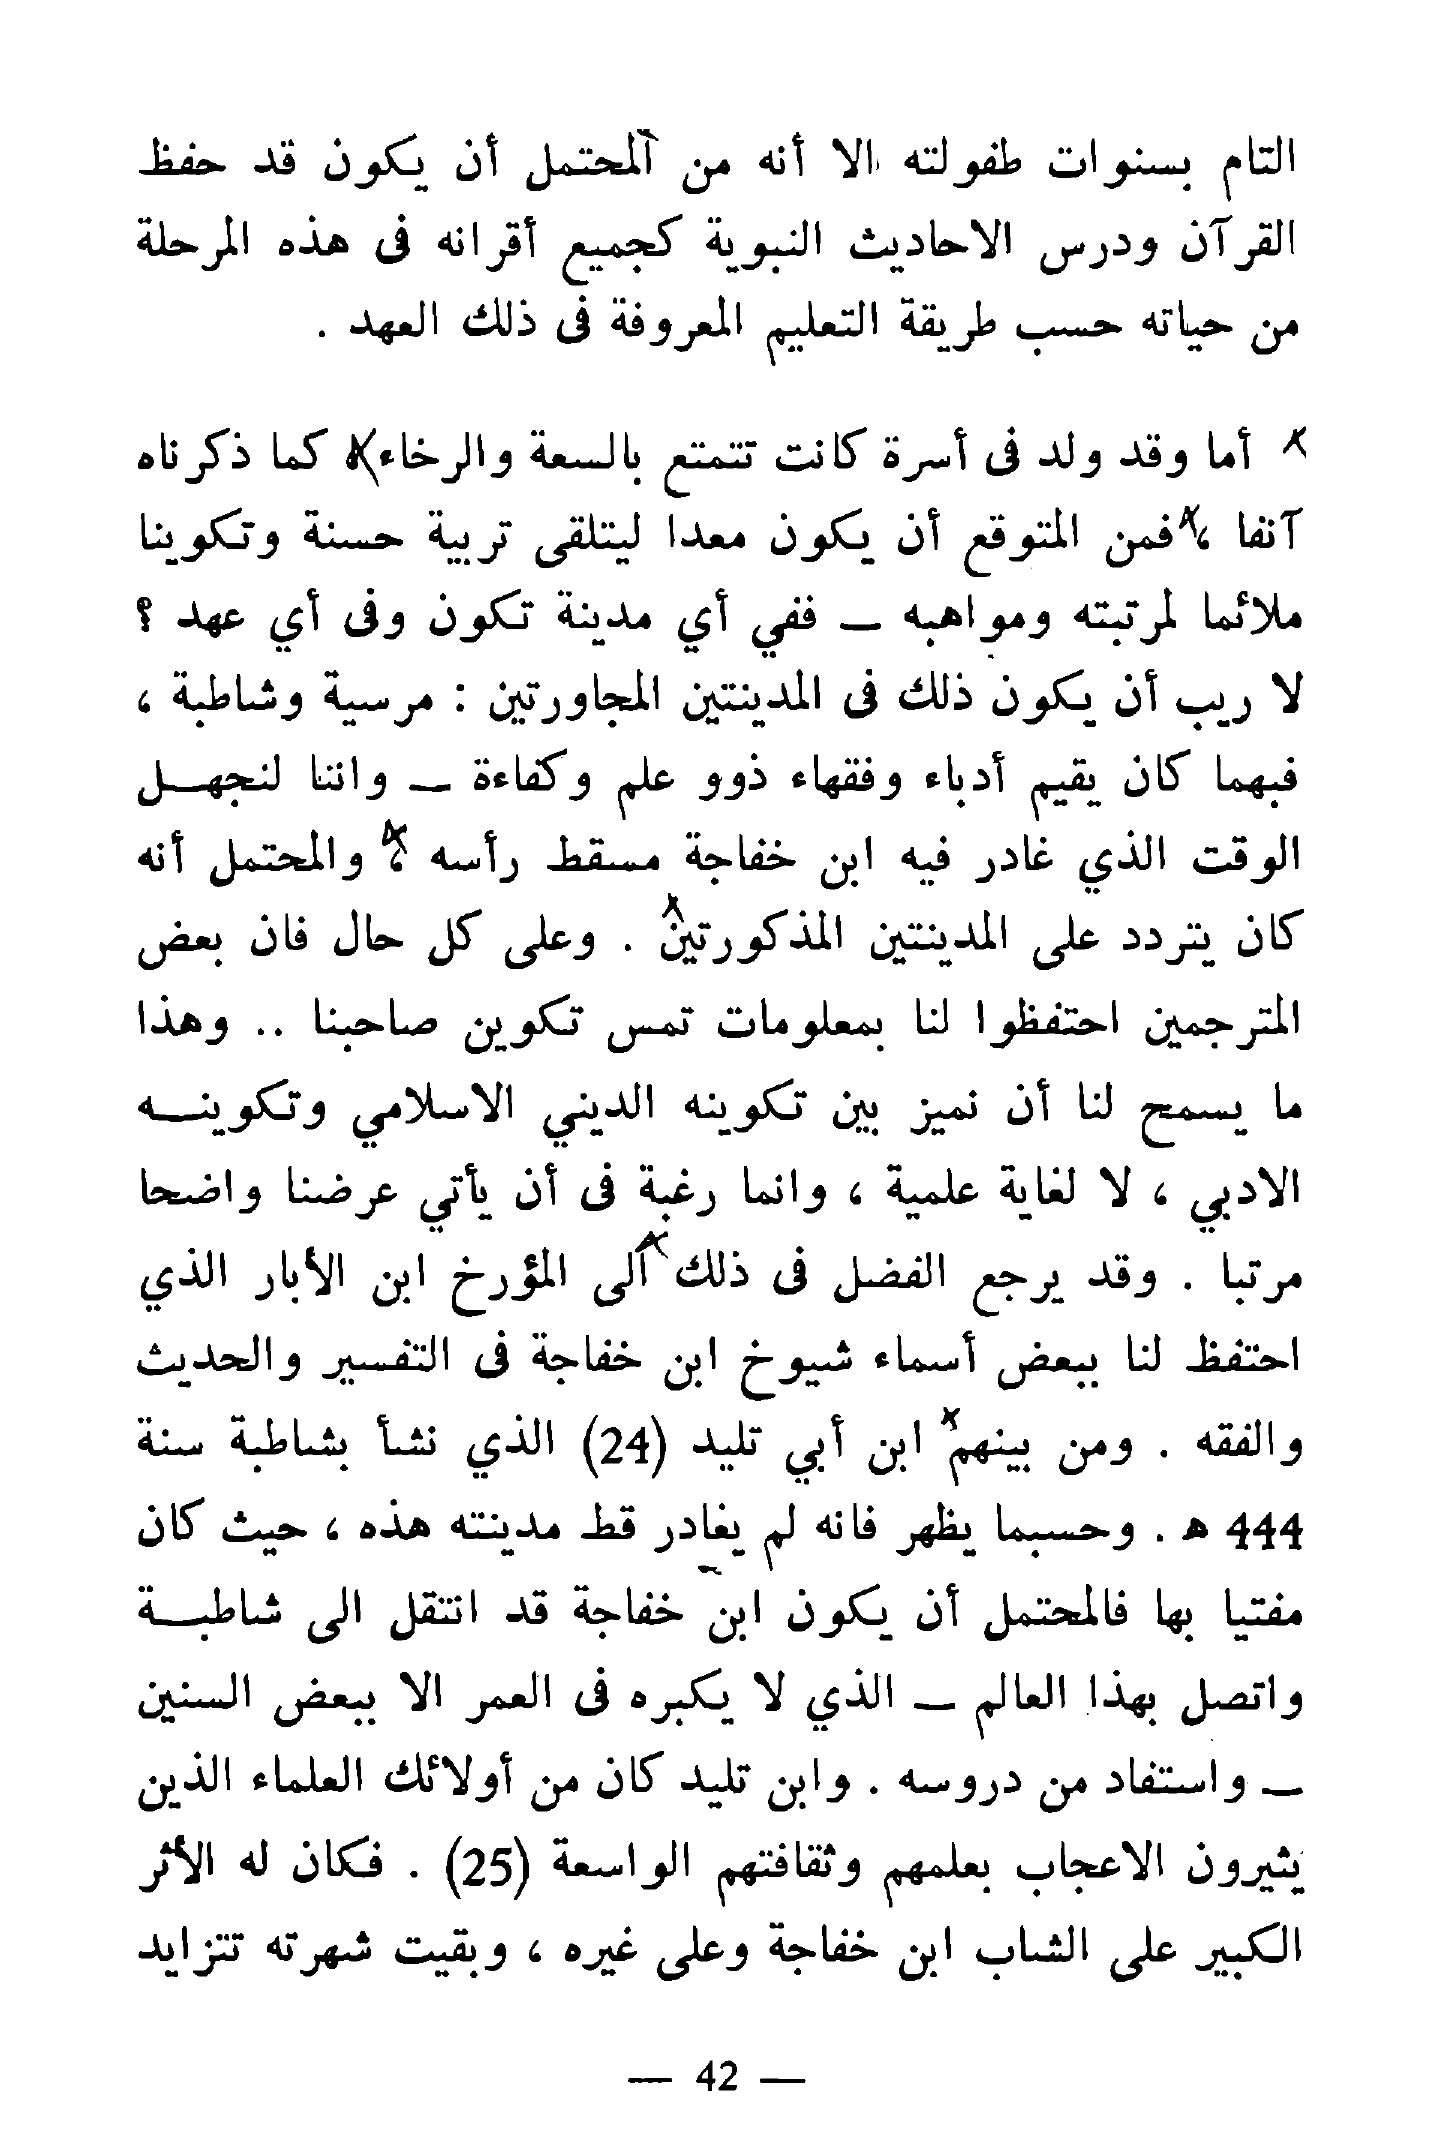 التام بسنوات طفولته الا أنه من المحتمل أن يكون قد حفظ
القرآن ودرس الاحاديث النبوية كجميع أقرانه فى هذه المرحلة
من حياته حسب طريقة التعليم المعروفة فى ذلك العهد .
أما وقد ولد فى أسرة كانت تتمتع بالسعة والرخاء، كما ذكرناه
آنفا ، فمن المتوقع أن يكون معدا ليتلقى تربية حسنة وتكوينا
ملائما لمرتبته ومواهبه — ففي أي مدينة تكون وفى أي عهد ؟
لا ريب أن يكون ذلك فى المدينتين المجاورتين : مرسية وشاطبة ،
فبهما كان يقيم أدباء وفقهاء ذوو علم وكفاءة — واننا لنجهــل
الوقت الذي غادر فيه ابن خفاجة مسقط رأسه ، والمحتمل أنه
كان يتردد على المدينتين المذكورتين . وعلى كل حال فان بعض
المترجمين احتفظوا لنا بمعلومات تمس تكوين صاحبنا .. وهذا
ما يسمح لنا أن نميز بين تكوينه الديني الاسلامي وتكوينــه
الادبي ، لا لغاية علمية ، وانما رغبة فى أن يأتي عرضنا واضحا
مرتبا . وقد يرجع الفضل فى ذلك الى المؤرخ ابن الأبار الذي
احتفظ لنا ببعض أسماء شيوخ ابن خفاجة فى التفسير والحديث
والفقه . ومن بينهم ابن أبي تليد (24) الذي نشأ بشاطبة سنة
444 ه . وحسبما يظهر فانه لم يغادر قط مدينته هذه ، حيث كان
مفتيا بها فالمحتمل أن يكون ابن خفاجة قد انتقل الى شاطبــة
واتصل بهذا العالم — الذي لا يكبره فى العمر الا ببعض السنين
— واستفاد من دروسه . وابن تليد كان من أولائك العلماء الذين
يثيرون الاعجاب بعلمهم وثقافتهم الواسعة (25) . فكان له الأثر
الكبير على الشاب ابن خفاجة وعلى غيره ، وبقيت شهرته تتزايد
— 42 —